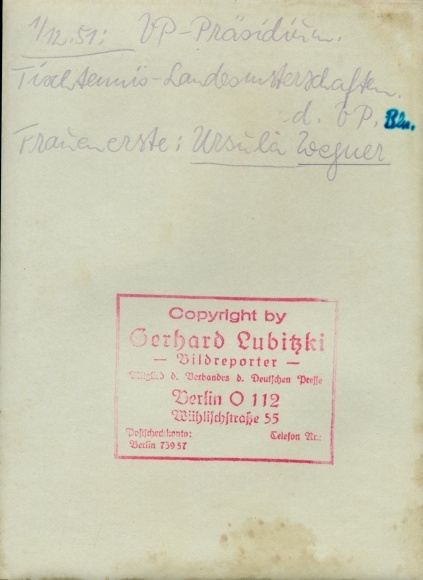 1/12.51: VP-Präsidium.
Tischtennis-Landesmsterschaften.
d. VP. Bln.
Frauenerste: Ursula Wegner
Copyright by
Gerhard Lubitzki
— Bildreporter —
Mitglied d. Verbandes d. Deutschen Presse
Berlin O 112
Wühlischstraße 55
Postscheckkonto: Telefon Nr.:
Berlin 73957